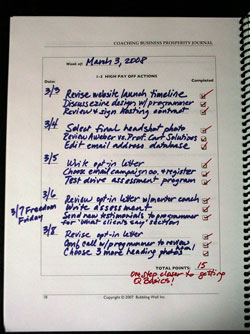 COACHING BUSINESS PROSPERITY JOURNAL
Week of: March 3, 2008
1-3 HIGH PAY OFF ACTIONS
Date: Completed
3/3 Revise website launch timeline
Discuss ezine design w/programmer
Review & sign hosting contract
3/4 Select final headshot photo
Review Aweber vs. Prof. Cart Solutions
Edit email address database
3/5 Write opt-in letter
Choose email campaign co. & register
Test drive assessment program
3/6 Review opt-in letter w/mentor coach
Write assessment
Send new testimonials to programmer
for "What clients say" section
3/7 Freedom
Friday
3/8 Revise opt-in letter
call w/programmer to review
Choose 3 more heading photos
TOTAL POINTS: 15
One step closer to getting
Q Basics!
18
Copyright © 2007 Bubbling Well Inc.